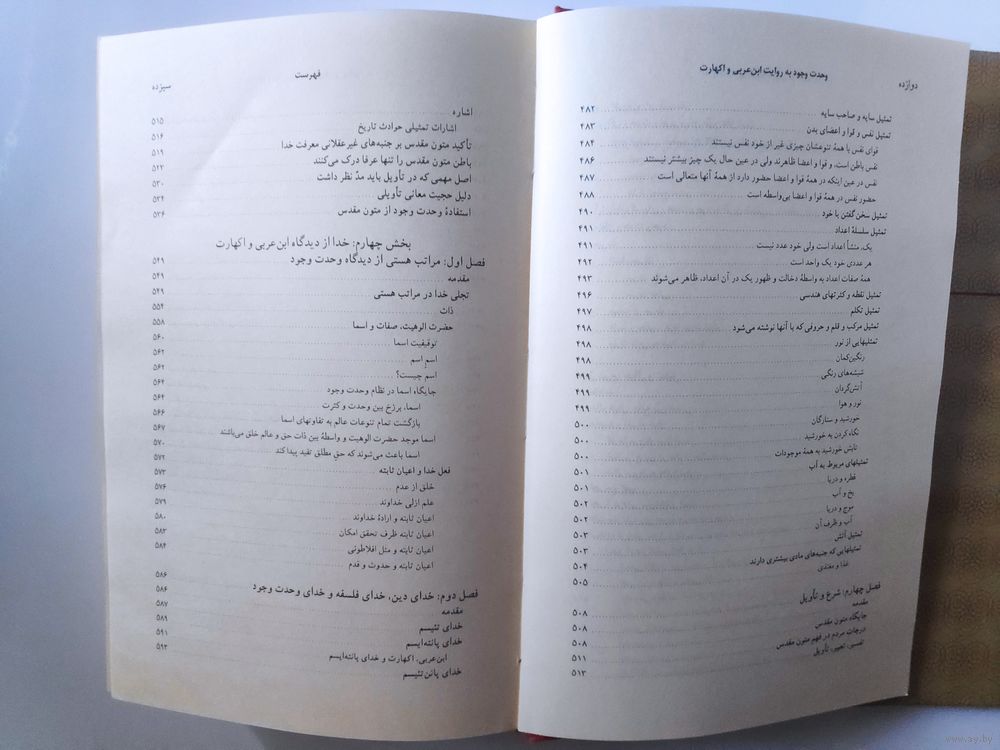 دوازده
وحدت وجود به روایت ابن‌عربی و اکهارت
تمثیل سایه و صاحب سایه ۴۸۲
تمثیل نفس و قوا و اعضای بدن ۴۸۳
قوای نفس با همهٔ تنوعشان چیزی غیر از خود نفس نیستند ۴۸۴
نفس باطن است، و قوا و اعضا ظاهرند ولی در عین حال یک چیز بیشتر نیستند ۴۸۶
نفس در عین اینکه در همهٔ قوا و اعضا حضور دارد از همهٔ آنها متعالی است ۴۸۷
حضور نفس در همهٔ قوا و اعضا بی‌واسطه است ۴۸۸
تمثیل سخن گفتن با خود ۴۹۰
تمثیل سلسلهٔ اعداد ۴۹۱
یک، منشأ اعداد است ولی خود عدد نیست ۴۹۱
هر عددی خود یک واحد است ۴۹۲
همهٔ صفات اعداد به واسطهٔ دخالت و ظهور یک در آن اعداد، ظاهر می‌شوند ۴۹۳
تمثیل نقطه و کثرتهای هندسی ۴۹۶
تمثیل تکلم ۴۹۷
تمثیل مرکب و قلم و حروفی که با آنها نوشته می‌شود ۴۹۸
تمثیلهایی از نور ۴۹۸
رنگین‌کمان ۴۹۸
شیشه‌های رنگی ۴۹۹
آتش‌گردان ۴۹۹
نور و هوا ۴۹۹
خورشید و ستارگان ۵۰۰
نگاه کردن به خورشید ۵۰۰
تابش خورشید به همهٔ موجودات ۵۰۰
تمثیلهای مربوط به آب ۵۰۱
قطره و دریا ۵۰۱
یخ و آب ۵۰۲
موج و دریا ۵۰۲
آب و ظرف آن ۵۰۳
تمثیل آتش ۵۰۳
تمثیلهایی که جنبه‌های مادی بیشتری دارند ۵۰۴
غذا و مغتذی ۵۰۵
فصل چهارم: شرع و تأویل
مقدمه ۵۰۸
جایگاه متون مقدس ۵۰۸
درجات مردم در فهم متون مقدس ۵۰۸
تفسیر، تعبیر، تأویل ۵۱۱
۵۱۳
فهرست
سیزده
اشاره
اشارات تمثیلی حوادث تاریخ ۵۱۵
تأکید متون مقدس بر جنبه‌های غیرعقلانی معرفت خدا ۵۱۶
باطن متون مقدس را تنها عرفا درک می‌کنند ۵۱۹
اصل مهمی که در تأویل باید مدّ نظر داشت ۵۲۲
دلیل حجیت معانی تأویلی ۵۳۰
استفادهٔ وحدت وجود از متون مقدس ۵۳۴
۵۳۶
بخش چهارم: خدا از دیدگاه ابن‌عربی و اکهارت
فصل اول: مراتب هستی از دیدگاه وحدت وجود
مقدمه ۵۴۹
تجلی خدا در مراتب هستی ۵۴۹
ذات ۵۴۹
حضرت الوهیت، صفات و اسما ۵۵۴
توقیفیت اسما ۵۵۸
اسم اسم ۵۶۰
اسم چیست؟ ۵۶۲
جایگاه اسما در نظام وحدت وجود ۵۶۲
اسما، برزخ بین وحدت و کثرت ۵۶۴
بازگشت تمام تنوعات عالم به تفاوتهای اسما ۵۶۴
اسما موجد حضرت الوهیت و واسطهٔ بین ذات حق و عالم خلق می‌باشند ۵۶۶
اسما باعث می‌شوند که حق مطلق تقید پیدا کند ۵۶۷
فعل خدا و اعیان ثابته ۵۷۰
خلق از عدم ۵۷۲
علم ازلی خداوند ۵۷۳
اعیان ثابته و ارادهٔ خداوند ۵۷۶
اعیان ثابته ظرف تحقق امکان ۵۷۹
اعیان ثابته و مثل افلاطونی ۵۸۰
اعیان ثابته و حدوث و قدم ۵۸۳
۵۸۴
فصل دوم: خدای دین، خدای فلسفه و خدای وحدت وجود
مقدمه ۵۸۶
خدای تئیسم ۵۸۶
خدای پانته‌ایسم ۵۸۷
ابن‌عربی، اکهارت و خدای پانته‌ایسم ۵۸۹
خدای پانن‌تئیسم ۵۹۱
۵۹۳
www.ay.by